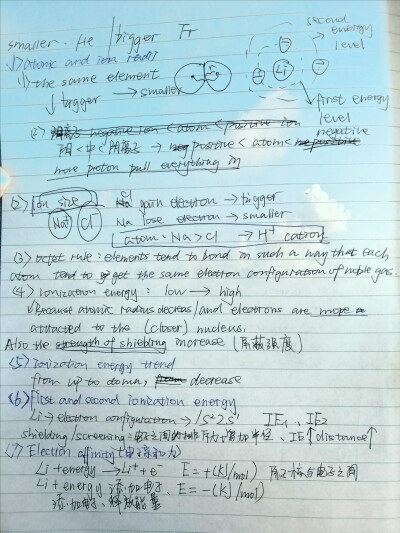 smaller. He | bigger Fr
second energy level
(1) atomic and ion radii
(1) the same element
Li
↓ bigger → smaller
first energy level
negative ion < atom < positive ion
negative
阳 < 中 < 阴离子 → positive < atom <
more proton pull everything in
(2) Ion size
Cl gain electron → bigger
Na⁺ Cl⁻ Na lose electron → smaller
atom: Na > Cl → H⁺ cation
(3) octet rule: elements tend to bond in such a way that each
atom tend to get the same electron configuration of noble gas
(4) Ionization energy: low → high
√Because atomic radius decreas/and electrons are more
attracted to the (closer) nucleus.
Also the strength of shielding increase (屏蔽强度)
<5> Ionization energy trend
from up to down, decrease
<6> First and second ionization energy
Li → electron configuration → 1s²2s¹ IE₁, IE₂
shielding/screening: 电子之间的排斥力 增加半径, IE↑ distance↑
<7> Electron affinity (电子亲和力)
Li + energy → Li⁺ + e⁻ E = +(KJ/mol) 原子核与电子之间
Li + energy 添加电子, E = -(KJ/mol)
添加电子, 释放能量